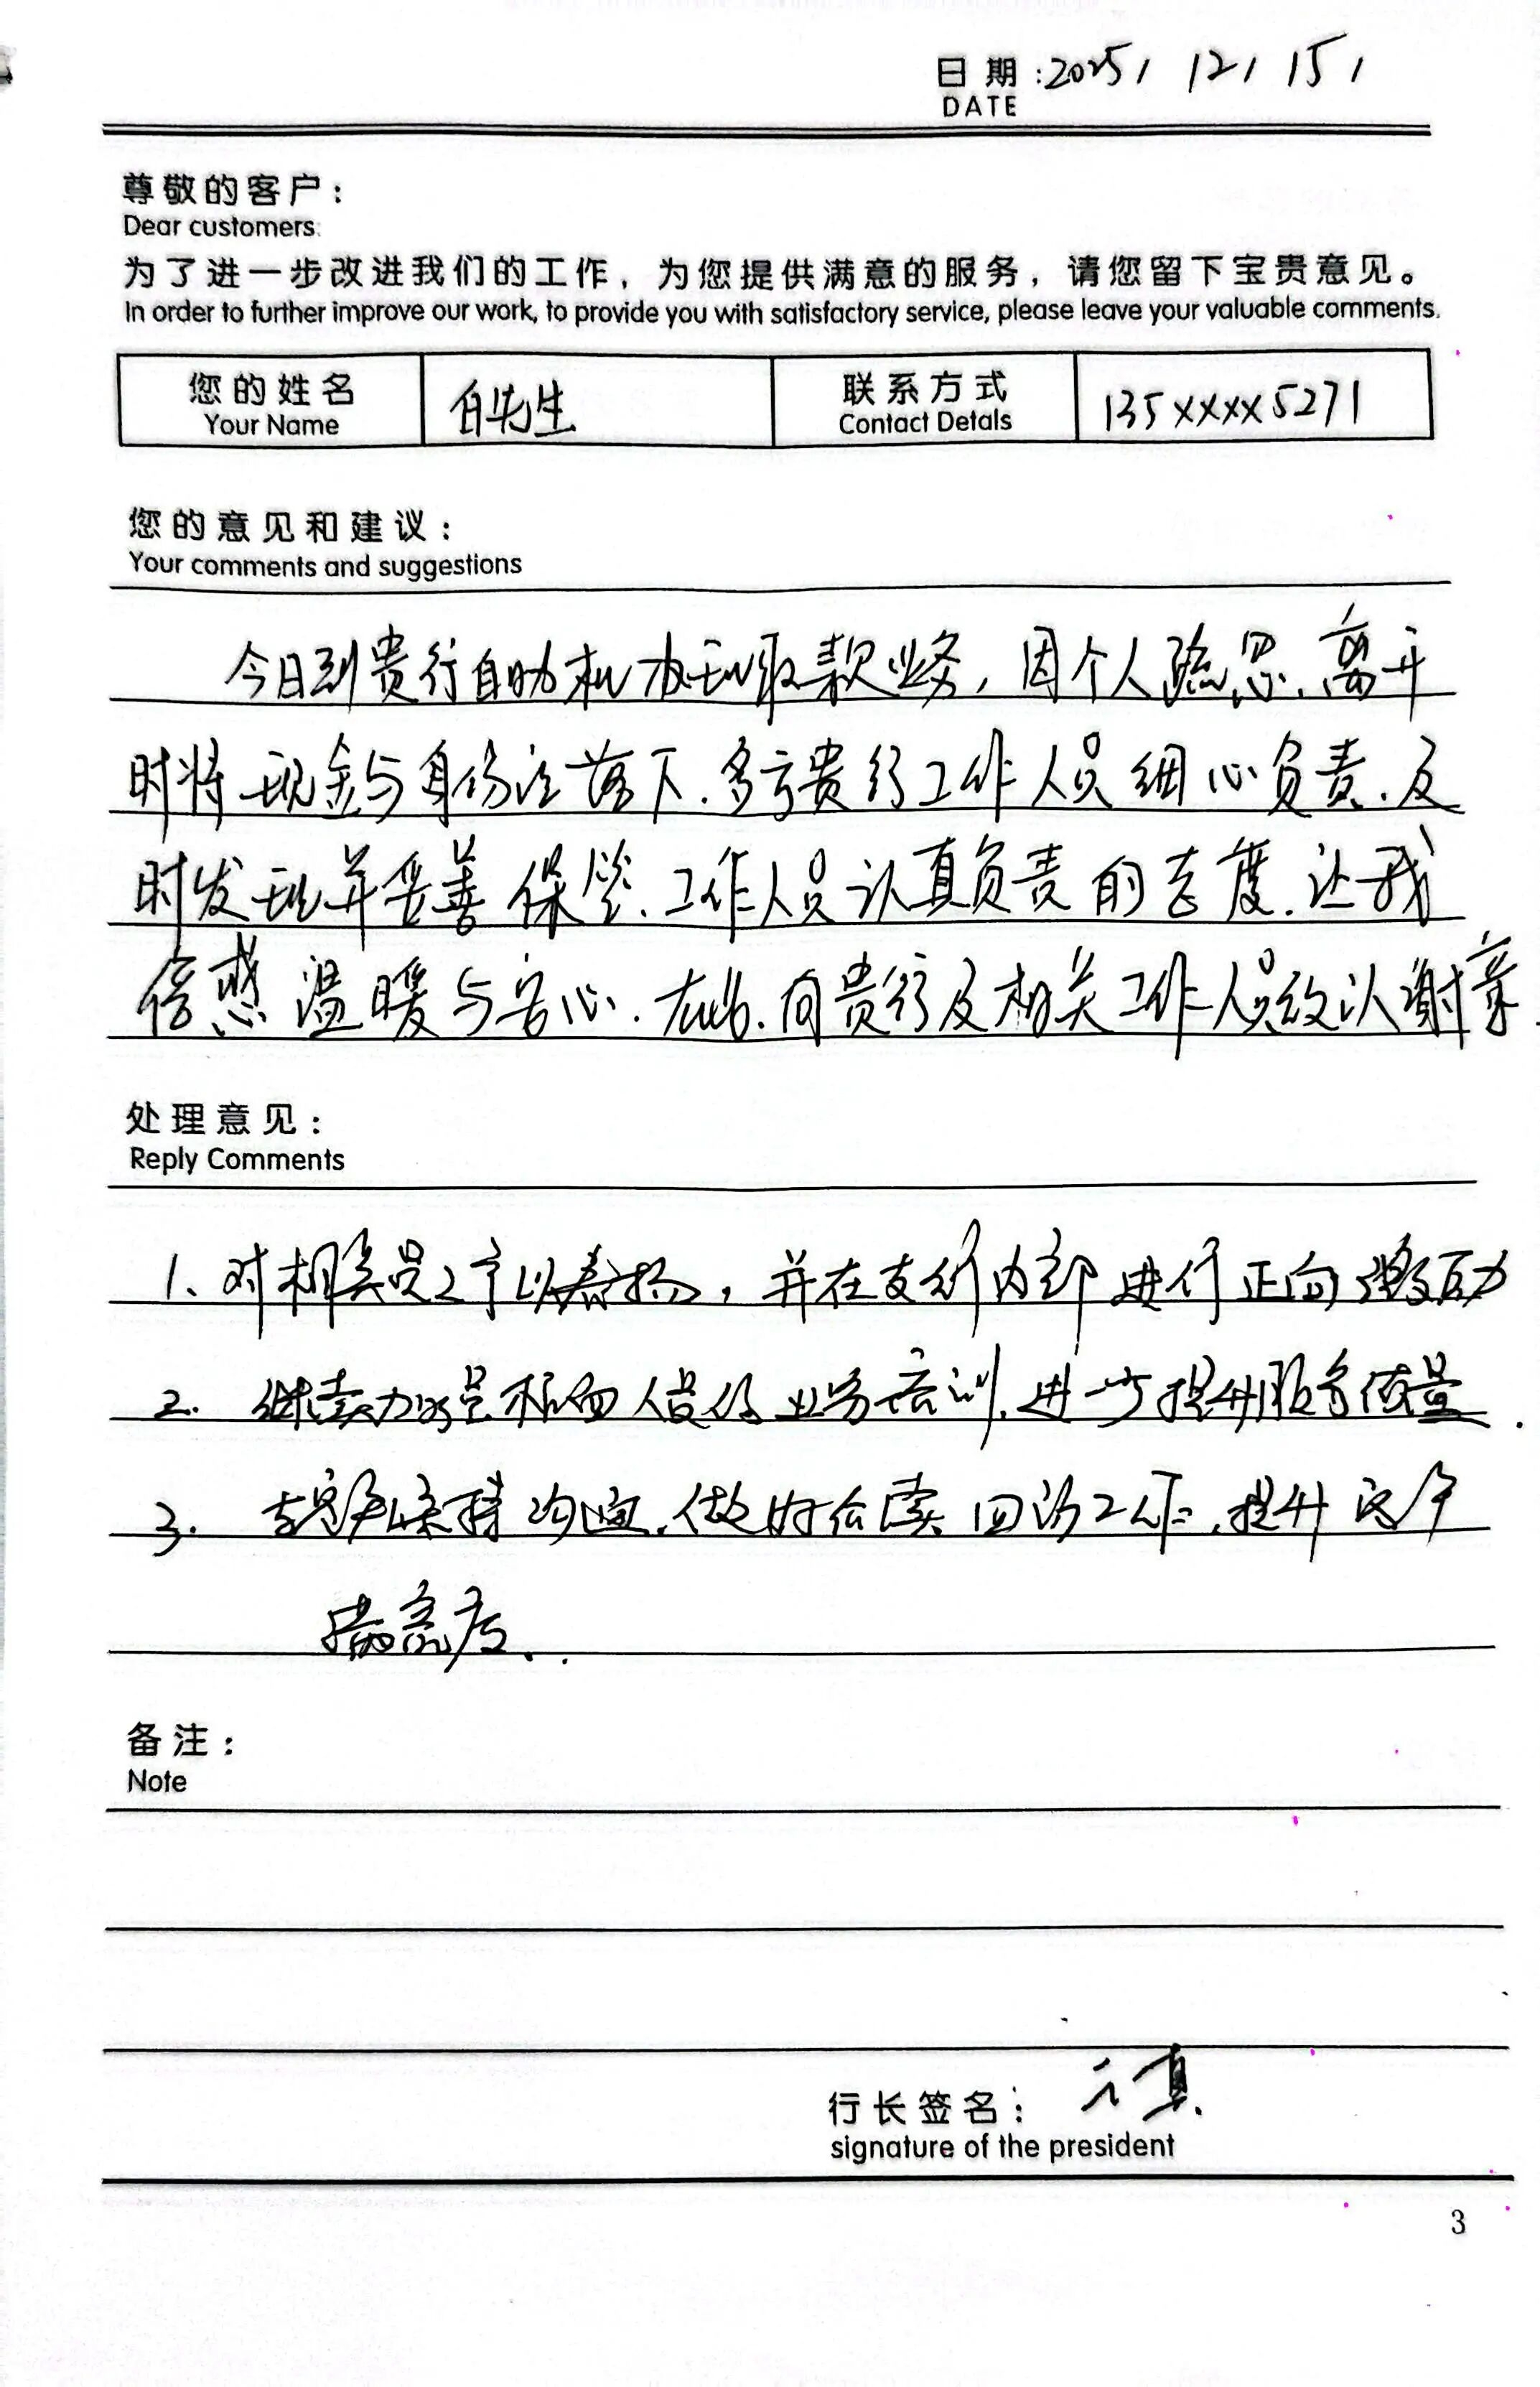 日期:2025/ 12/ 15/
DATE
尊敬的客户:
Dear customers:
为了进一步改进我们的工作,为您提供满意的服务,请您留下宝贵意见。
In order to further improve our work, to provide you with satisfactory service, please leave your valuable comments.
您的姓名 白先生 联系方式 135xxxx5271
Your Name Contact Detals
您的意见和建议:
Your comments and suggestions
今日到贵行自助机办理取款业务,因个人疏忽、离开
时将现金与身份证落下.多亏贵行工作人员细心负责.及
时发现并妥善保管、工作人员认真负责的态度.让我
倍感温暖与安心.在此.向贵行及相关工作人员致以谢意.
处理意见:
Reply Comments
1、对相关员工予以表扬,并在支行内部进行正向激励
2. 继续加强柜面人员的业务培训.进一步提升服务质量.
3. 与客户保持沟通.做好后续回访工作.提升客户
满意度..
备注:
Note
行长签名:
signature of the president
3